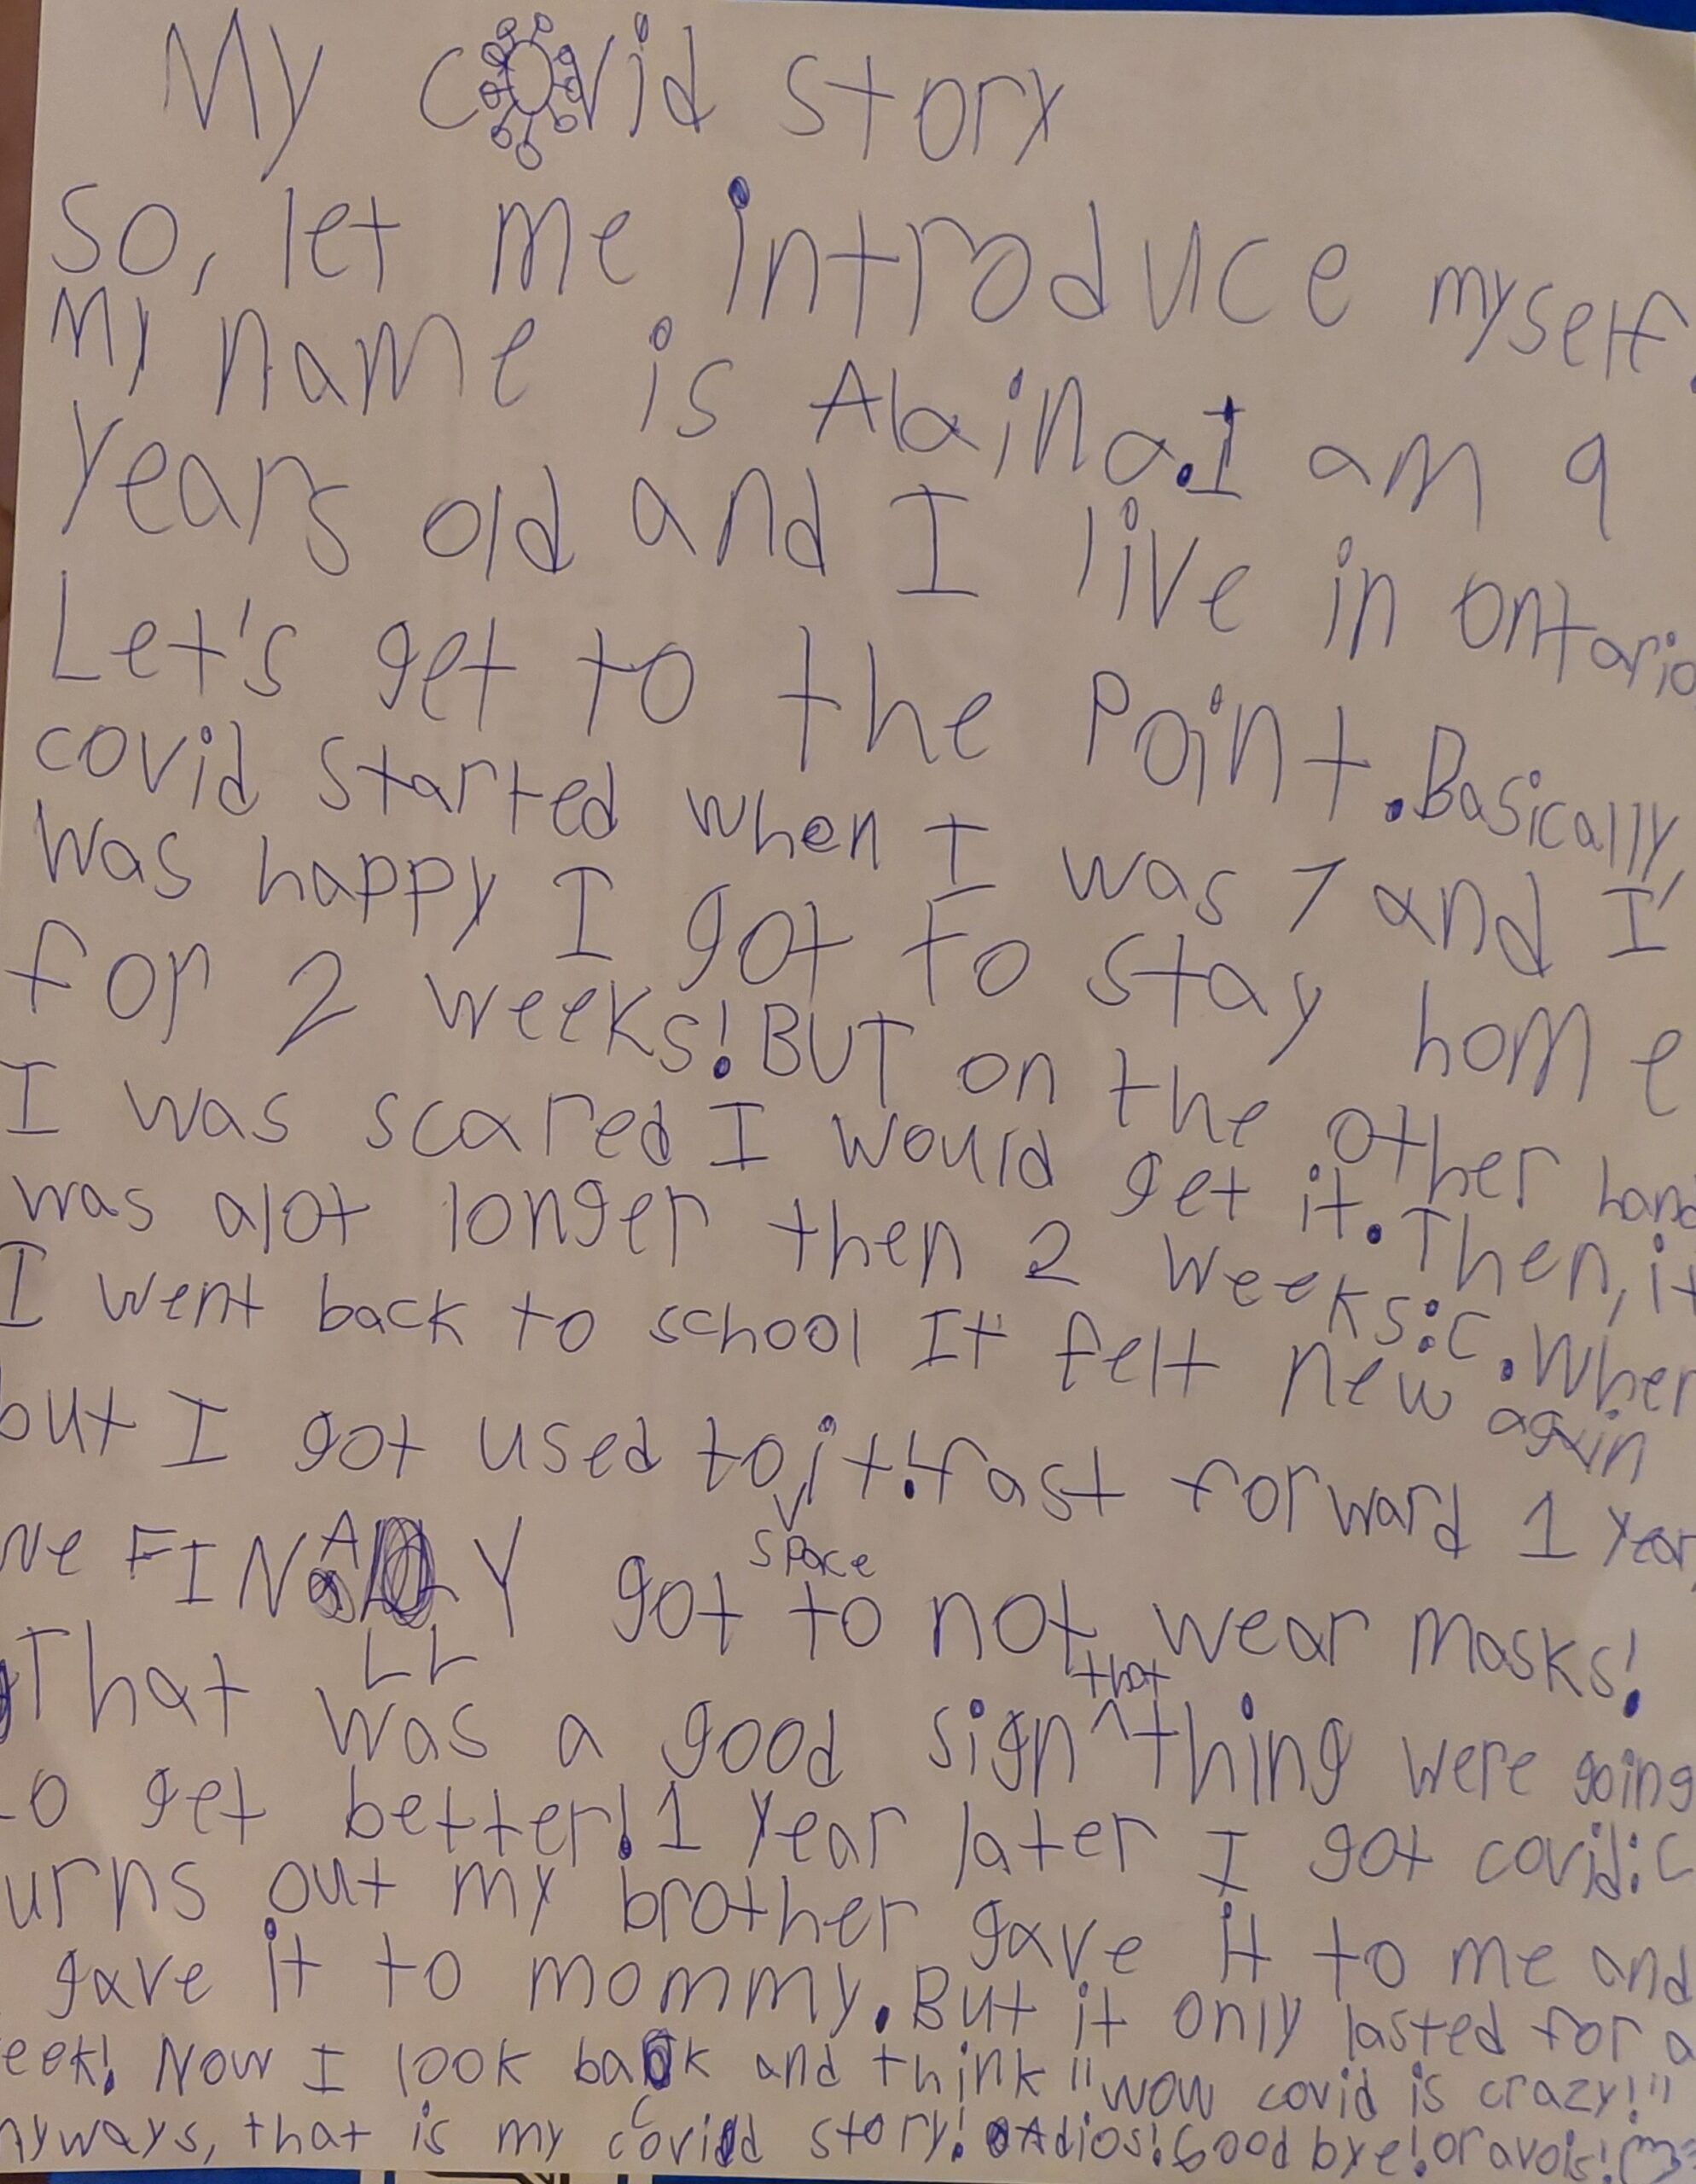 My covid story
So, let me introduce myself.
My name is Alaina. I am 9
years old and I live in ontario
Let's get to the Point. Basically,
covid started when I was 7 and I
was happy I got to stay home
for 2 weeks! BUT on the other hand
I was scared I would get it. Then, it
was alot longer then 2 weeks :C. When
I went back to school It felt new again
but I got used to it! fast forward 1 year,
space
we FINALLY got to not wear masks!
That was a good sign ^that thing were going
to get better! 1 year later I got covid :C
urns out my brother gave it to me and
gave it to mommy. But it only lasted for a
eek! Now I look back and think "wow covid is crazy!"
nyways, that is my covid story! Adios! Good bye! oravois!